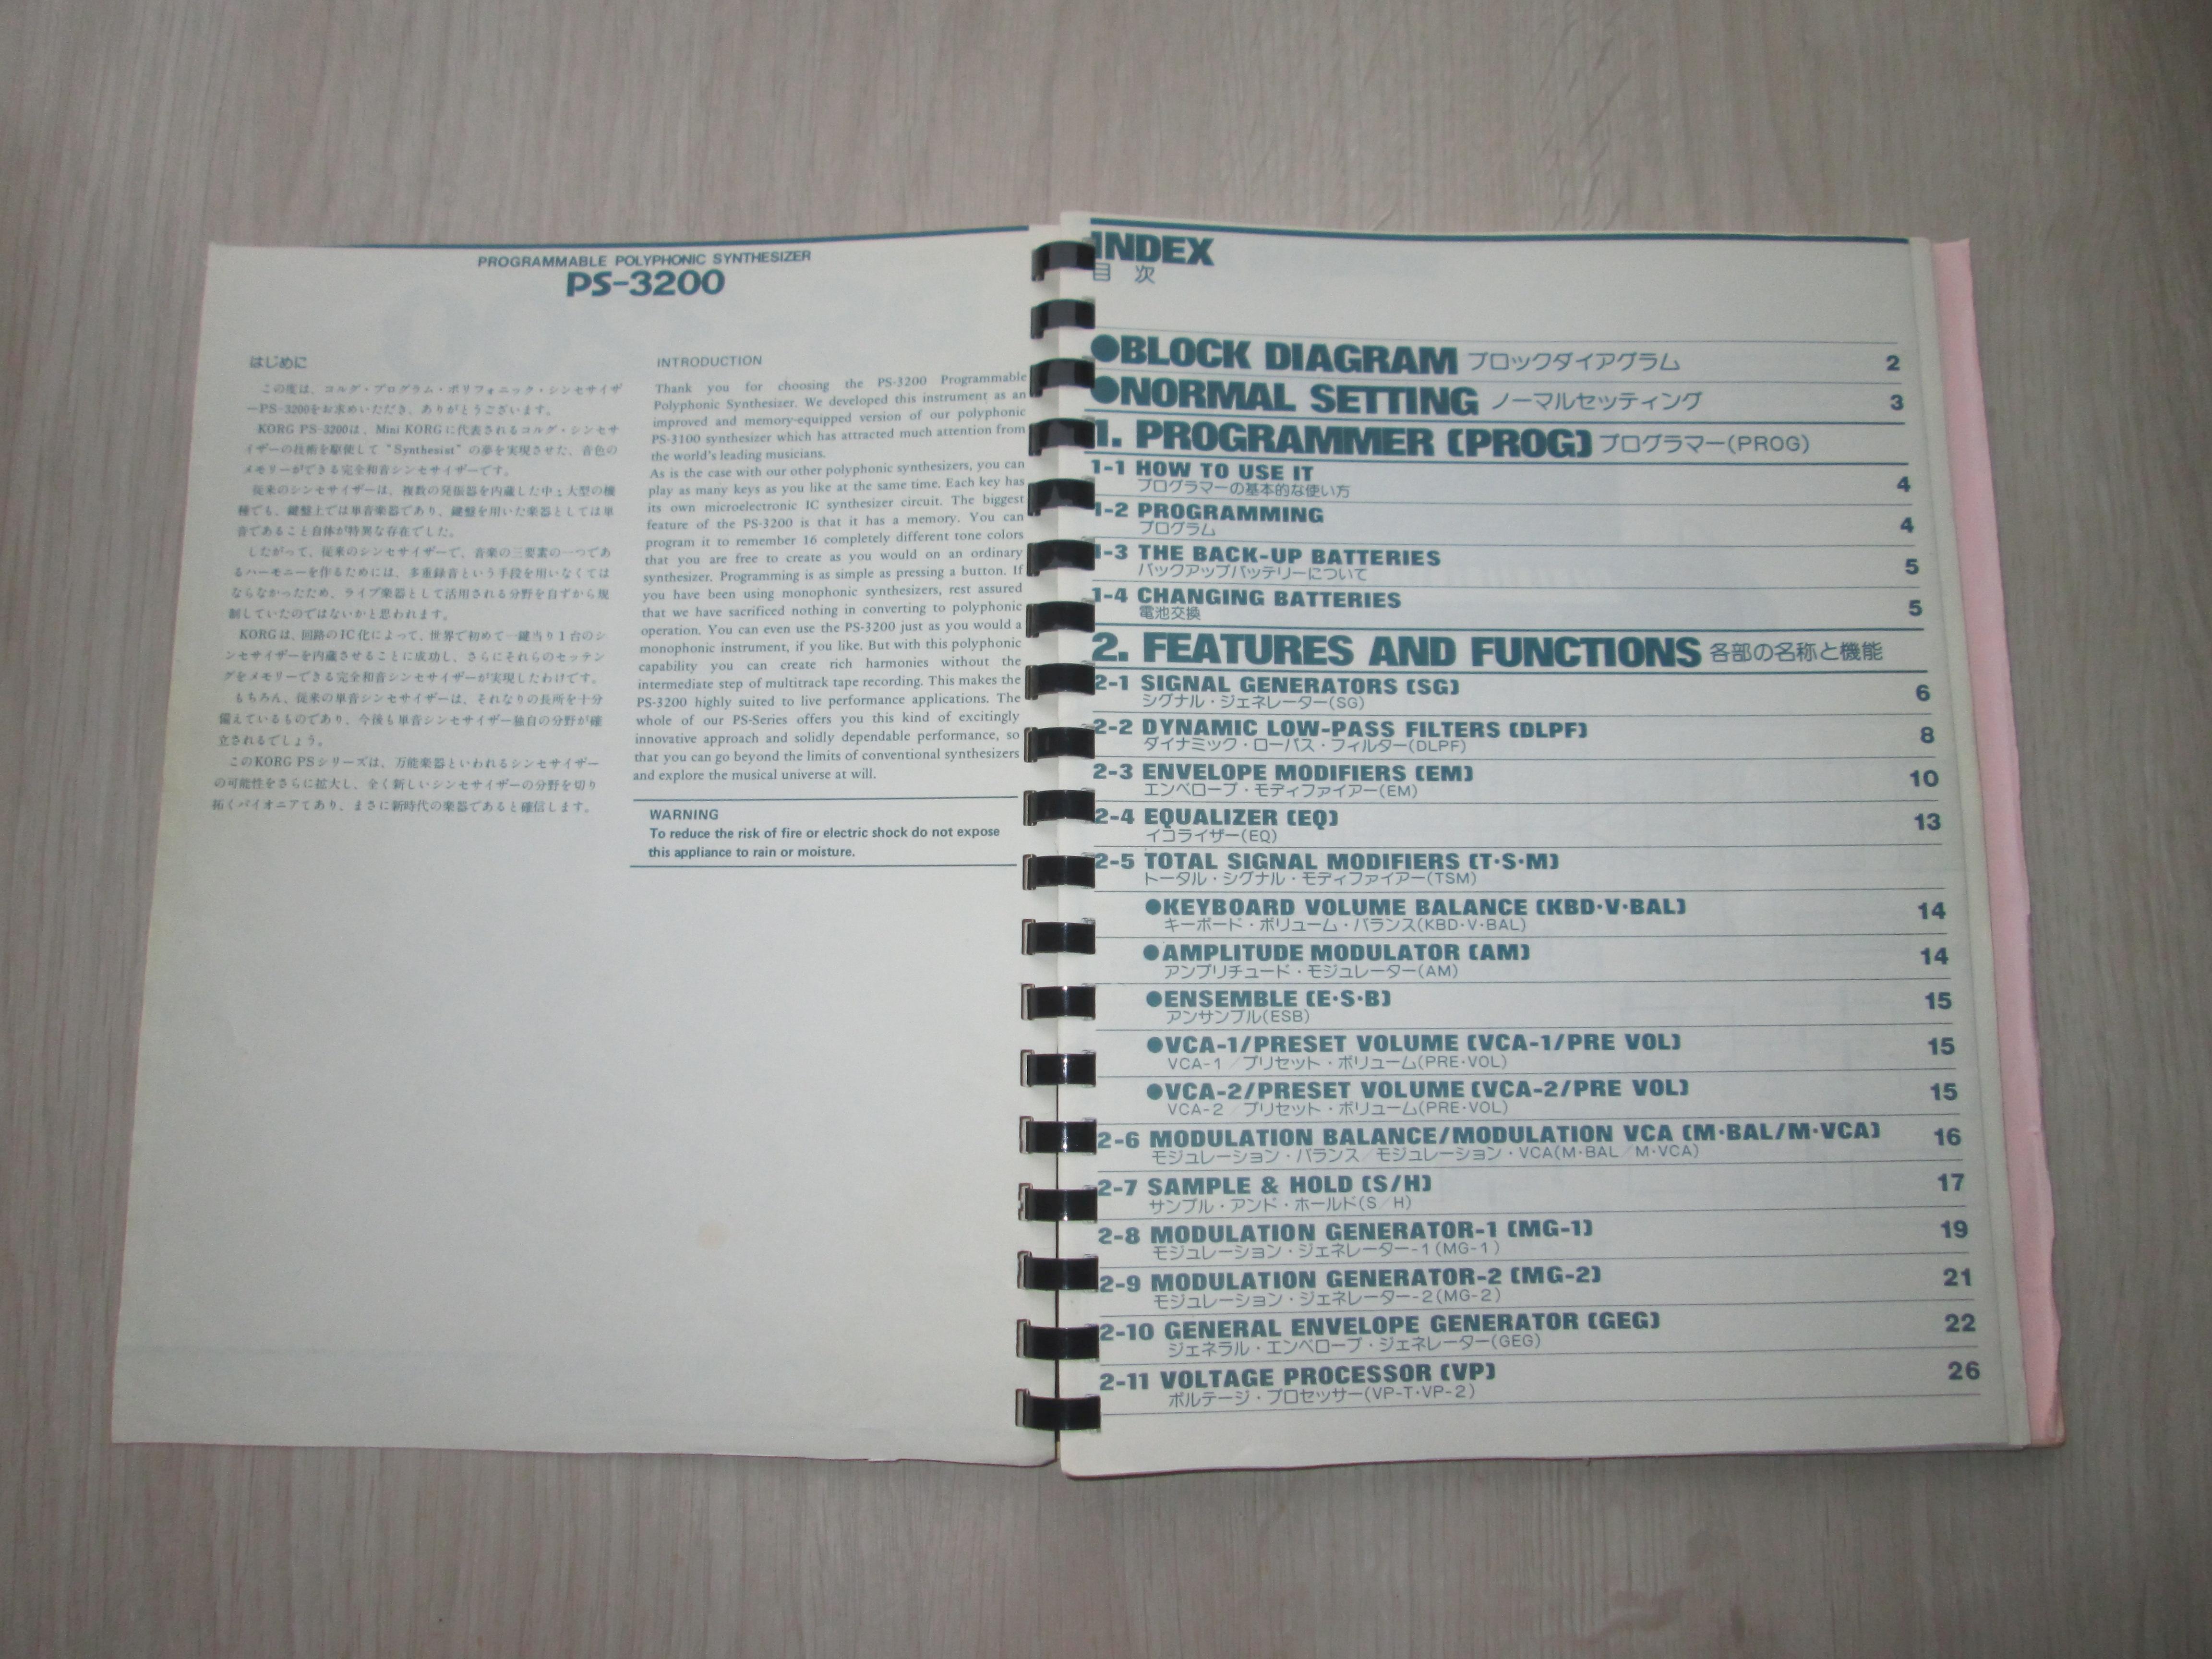 PROGRAMMABLE POLYPHONIC SYNTHESIZER
PS-3200
はじめに
この度は、コルグ・プログラム・ポリフォニック・シンセサイザ
ーPS-3200をお求めいただき、ありがとうございます。
KORG PS-3200は、Mini KORGに代表されるコルグ・シンセサ
イザーの技術を駆使して“Synthesist”の夢を実現させた、音色の
メモリーができる完全和音シンセサイザーです。
従来のシンセサイザーは、複数の発振器を内蔵した中、大型の機
種でも、鍵盤上では単音楽器であり、鍵盤を用いた楽器としては単
音であること自体が特異な存在でした。
したがって、従来のシンセサイザーで、音楽の三要素の一つであ
るハーモニーを作るためには、多重録音という手段を用いなくては
ならなかったため、ライブ楽器として活用される分野を自ずから規
制していたのではないかと思われます。
KORGは、回路のIC化によって、世界で初めて一鍵当り1台のシ
ンセサイザーを内蔵させることに成功し、さらにそれらのセッテン
グをメモリーできる完全和音シンセサイザーが実現したわけです。
もちろん、従来の単音シンセサイザーは、それなりの長所を十分
備えているものであり、今後も単音シンセサイザー独自の分野が確
立されるでしょう。
このKORG PSシリーズは、万能楽器といわれるシンセサイザー
の可能性をさらに拡大し、全く新しいシンセサイザーの分野を切り
拓くパイオニアであり、まさに新時代の楽器であると確信します。
INTRODUCTION
Thank you for choosing the PS-3200 Programmable
Polyphonic Synthesizer. We developed this instrument as an
improved and memory-equipped version of our polyphonic
PS-3100 synthesizer which has attracted much attention from
the world's leading musicians.
As is the case with our other polyphonic synthesizers, you can
play as many keys as you like at the same time. Each key has
its own microelectronic IC synthesizer circuit. The biggest
feature of the PS-3200 is that it has a memory. You can
program it to remember 16 completely different tone colors
that you are free to create as you would on an ordinary
synthesizer. Programming is as simple as pressing a button. If
you have been using monophonic synthesizers, rest assured
that we have sacrificed nothing in converting to polyphonic
operation. You can even use the PS-3200 just as you would a
monophonic instrument, if you like. But with this polyphonic
capability you can create rich harmonies without the
intermediate step of multitrack tape recording. This makes the
PS-3200 highly suited to live performance applications. The
whole of our PS-Series offers you this kind of excitingly
innovative approach and solidly dependable performance, so
that you can go beyond the limits of conventional synthesizers
and explore the musical universe at will.
WARNING
To reduce the risk of fire or electric shock do not expose
this appliance to rain or moisture.
INDEX
目 次
●BLOCK DIAGRAM ブロックダイアグラム 2
●NORMAL SETTING ノーマルセッティング 3
1. PROGRAMMER (PROG) プログラマー(PROG)
1-1 HOW TO USE IT 4
プログラマーの基本的な使い方
1-2 PROGRAMMING 4
プログラム
1-3 THE BACK-UP BATTERIES 5
バックアップバッテリーについて
1-4 CHANGING BATTERIES 5
電池交換
2. FEATURES AND FUNCTIONS 各部の名称と機能
2-1 SIGNAL GENERATORS (SG) 6
シグナル・ジェネレーター(SG)
2-2 DYNAMIC LOW-PASS FILTERS (DLPF) 8
ダイナミック・ローパス・フィルター(DLPF)
2-3 ENVELOPE MODIFIERS (EM) 10
エンベロープ・モディファイアー(EM)
2-4 EQUALIZER (EQ) 13
イコライザー(EQ)
2-5 TOTAL SIGNAL MODIFIERS (T·S·M)
トータル・シグナル・モディファイアー(TSM)
●KEYBOARD VOLUME BALANCE (KBD·V·BAL) 14
キーボード・ボリューム・バランス(KBD·V·BAL)
●AMPLITUDE MODULATOR (AM) 14
アンプリチュード・モジュレーター(AM)
●ENSEMBLE (E·S·B) 15
アンサンブル(ESB)
●VCA-1/PRESET VOLUME (VCA-1/PRE VOL) 15
VCA-1／プリセット・ボリューム(PRE·VOL)
●VCA-2/PRESET VOLUME (VCA-2/PRE VOL) 15
VCA-2／プリセット・ボリューム(PRE·VOL)
2-6 MODULATION BALANCE/MODULATION VCA (M·BAL/M·VCA) 16
モジュレーション・バランス／モジュレーション・VCA(M·BAL／M·VCA)
2-7 SAMPLE & HOLD (S/H) 17
サンプル・アンド・ホールド(S／H)
2-8 MODULATION GENERATOR-1 (MG-1) 19
モジュレーション・ジェネレーター-1(MG-1)
2-9 MODULATION GENERATOR-2 (MG-2) 21
モジュレーション・ジェネレーター-2(MG-2)
2-10 GENERAL ENVELOPE GENERATOR (GEG) 22
ジェネラル・エンベロープ・ジェネレーター(GEG)
2-11 VOLTAGE PROCESSOR (VP) 26
ボルテージ・プロセッサー(VP-T·VP-2)